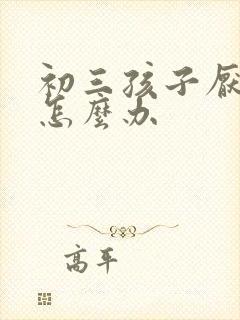 初三孩子厌
怎麼办
高平